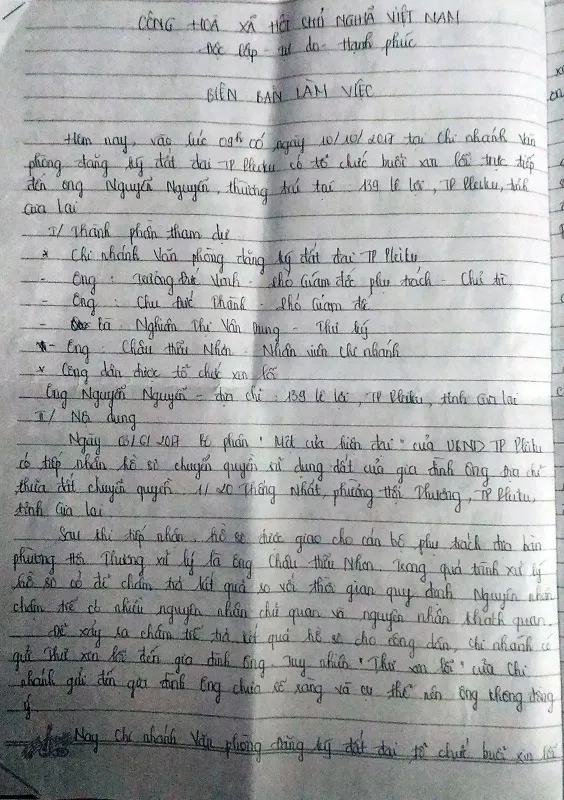 CỘNG HOÀ XÃ HỘI CHỦ NGHĨA VIỆT NAM
Độc lập - tự do - Hạnh phúc
BIÊN BẢN LÀM VIỆC
Hôm nay, vào lúc 09h 00 ngày 10/10/2017 tại Chi nhánh Văn
phòng đăng ký đất đai TP Pleiku có tổ chức buổi xin lỗi trực tiếp
đến ông Nguyễn Nguyễn, thường trú tại: 139 Lê Lợi, TP Pleiku, tỉnh
Gia Lai
I/ Thành phần tham dự
* Chi nhánh Văn phòng đăng ký đất đai TP Pleiku
- Ông: Trương Đức Vinh - Phó Giám đốc phụ trách - Chủ trì
- Ông: Chu Đức Thành - Phó Giám đố
- Bà: Nghiêm Thị Vân Dung - Thư ký
- Ông: Châu Hữu Nhơn - Nhân viên Chi nhánh
* Công dân được tổ chức xin lỗi
Ông Nguyễn Nguyễn - địa chỉ: 139 Lê Lợi, TP Pleiku, tỉnh Gia Lai
II/ Nội dung
Ngày 2017 Bộ phận "Một cửa hiện đại" của UBND TP Pleiku
có tiếp nhận hồ sơ chuyển quyền sử dụng đất của gia đình ông địa chỉ
thửa đất chuyển quyền: 20 Thống Nhất, phường Hội Thương, TP Pleiku,
tỉnh Gia Lai
Sau khi tiếp nhận, hồ sơ được giao cho cán bộ phụ trách địa bàn
phường Hội Thương xử lý là ông Châu Hữu Nhơn. Trong quá trình xử lý
hồ sơ có để chậm trả kết quả so với thời gian quy định. Nguyên nhân
chậm trễ có nhiều nguyên nhân chủ quan và nguyên nhân khách quan.
Để xảy ra chậm trễ trả kết quả hồ sơ cho công dân, Chi nhánh có
gửi Thư xin lỗi đến gia đình ông. Tuy nhiên "Thư xin lỗi" của Chi
nhánh gửi đến gia đình ông chưa rõ ràng và cụ thể nên ông không đồng
ý
Nay Chi nhánh Văn phòng Đăng ký đất đai tổ chức buổi xin lỗi